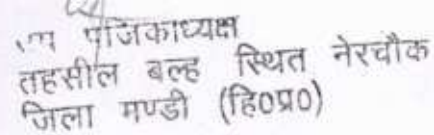 पंजिकाध्यक्ष
तहसील बल्ह स्थित नेरचौक
जिला मण्डी (हि0प्र0)